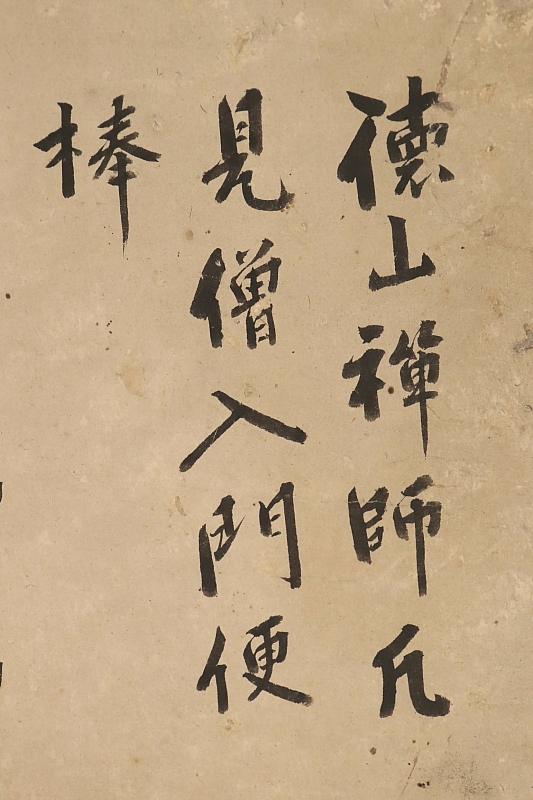 德山禪師凡
見僧入門便
棒